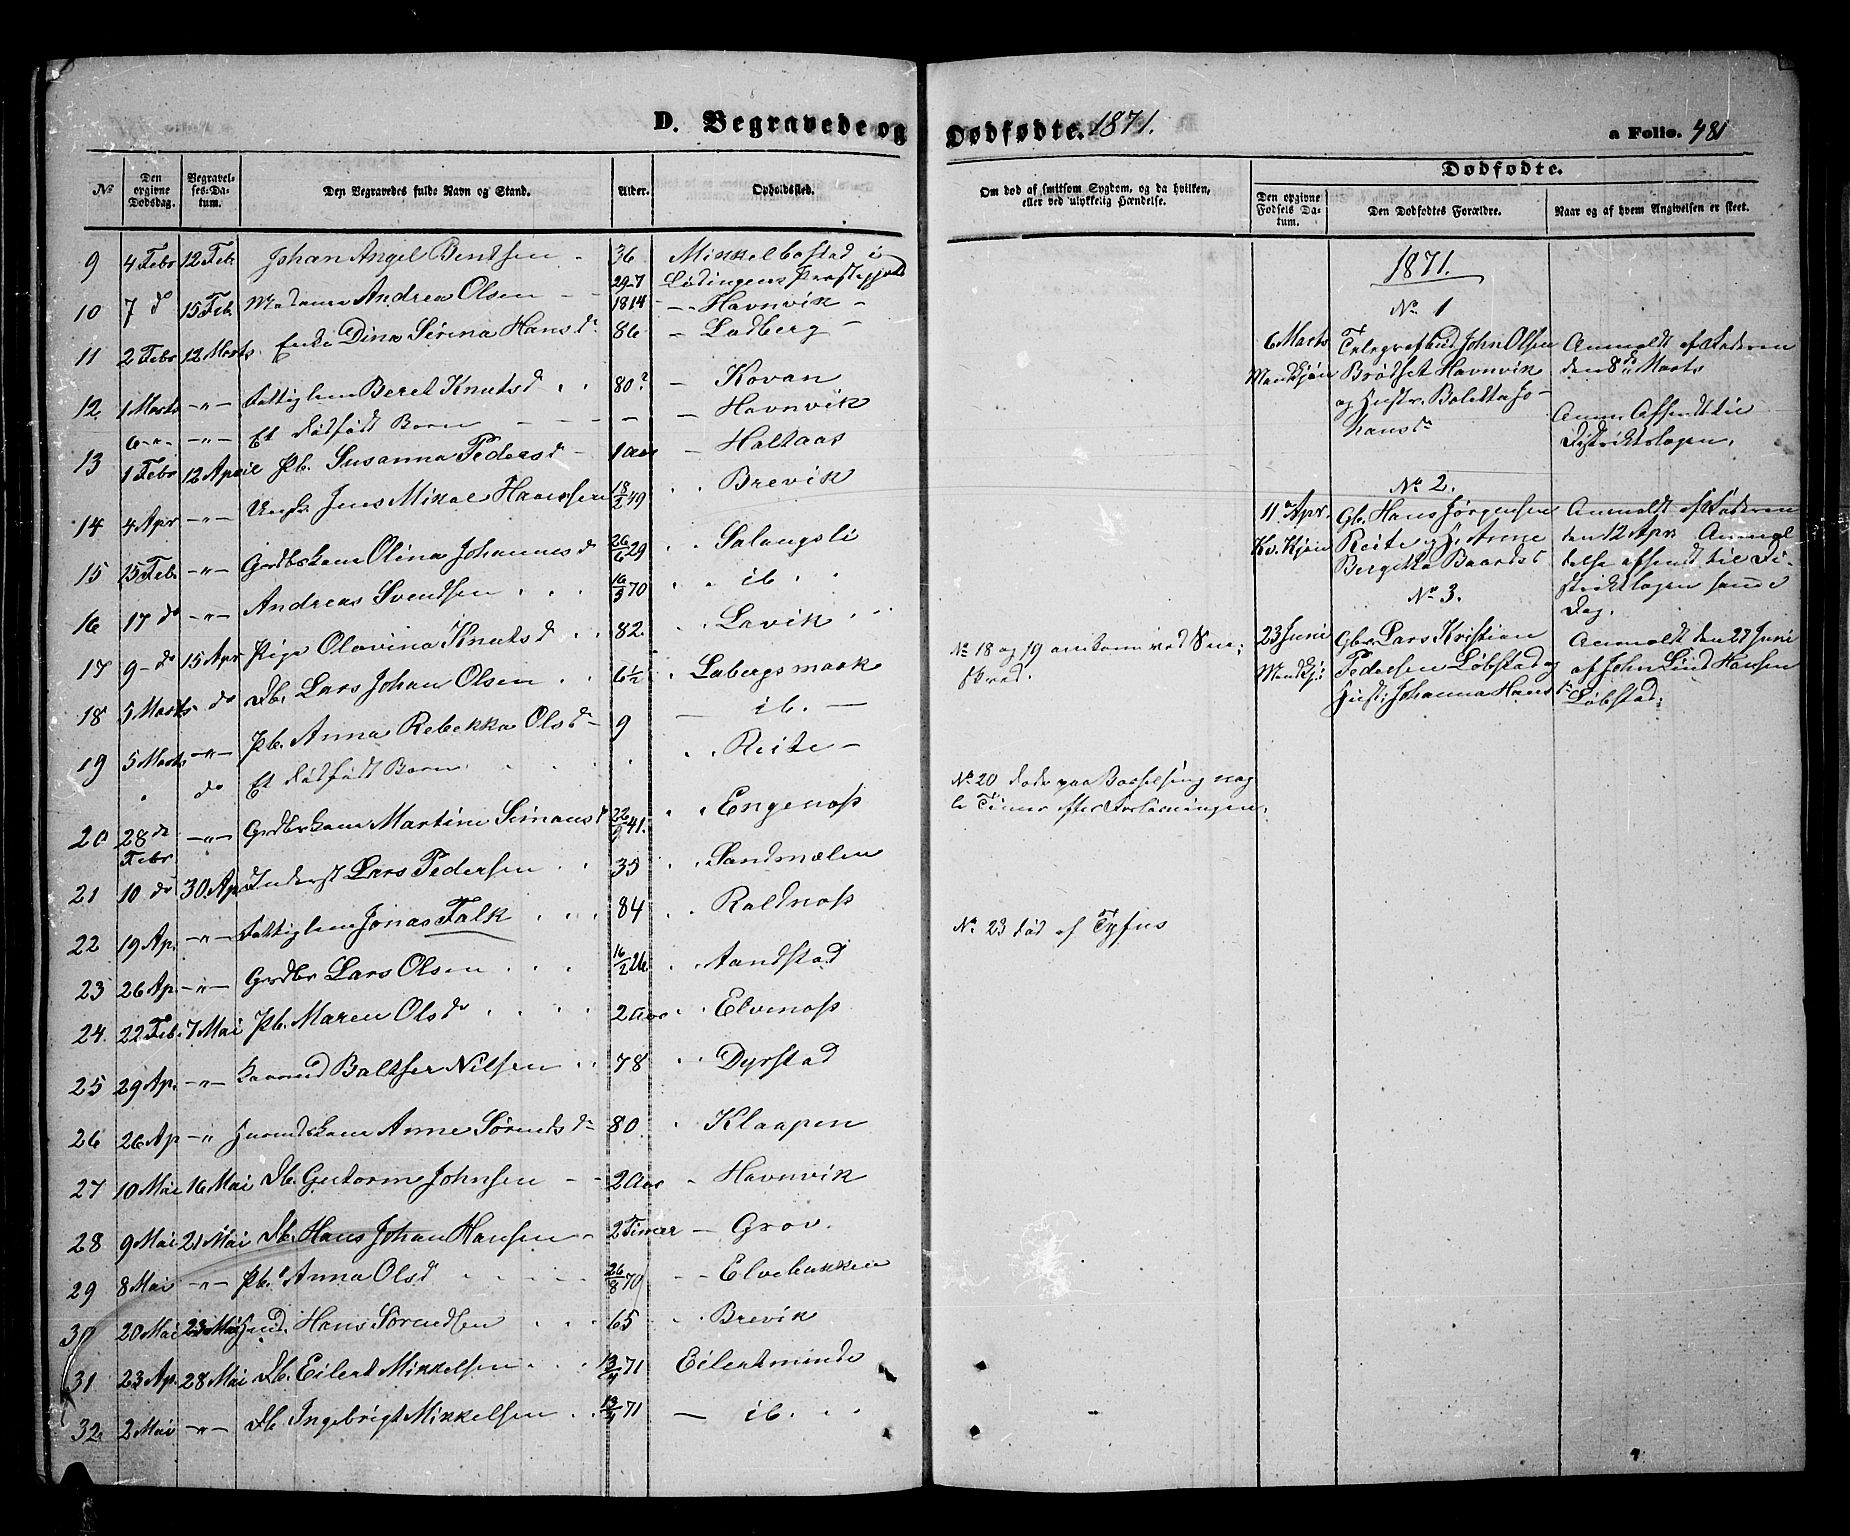 D. Begravede og Dødfødte. 1871.
a Folio. 481
No
Den opgivne Dødsdag.
Begravelses-Datum.
Den Begravedes fulde Navn og Stand.
Alder.
Opholdssted.
Om død af smitsom Sygdom, og da hvilken, eller ved ulykkelig Hændelse.
Dødfødte.
Den opgivne Fødsels Datum.
Den Dødfødtes Forældre.
Naar og af hvem Angivelsen er skeet.
9 4 Febr 12 Feb. Johan Angel Bentsen 36 Mikkelbostad i
Lødingens Præstegjeld
10 7 do 15 Feb. Madame Andrea Olsen 29-7 1814 Havnvik
11 2 Febr 12 Marts Enke Dina Serina Hansd. 86 Ladberg
12 1 Marts -"- Fattiglem Beret Knutsd 80? Kovan
6 -"- -"- Et dødfødt Barn Havnvik
13 1 Febr 12 April Pb. Susanna Pedersd 1 Aar Haltaas
14 4 Apr -"- Ungk. Jens Mikal Hanssen 18/2 49 Brevik
15 15 Feb. -"- Grdbrkone Olina Johannesd 26/6 29 Salangsli
16 17 do -"- Andreas Svendsen 16/3 70 ib.
17 9 do 15 Apr Pige Olavina Knutsd 82. Lavik
18 5 Marts do Db. Lars Johan Olsen 6 1/2 Labergsmark
19 5 Marts -"- Pb. Anna Rebekka Olsd 9 ib.
" do Et dødfødt Barn Reite
20 28 de Febr -"- Grdbrkone Martine Simonsd 41. Engenoss
21 10 do 30 Ap Inderst Lars Pedersen 35 Sandmælen
22 19 Ap. -"- Fattiglem Jonas Falk 84 Roldnoss
23 26 Ap. -"- Grdbr Lars Olsen 16/2 26. Aandstad
24. 22 Feb. 7 Mai Pb. Maren Olsdr 2 Aar Elvenoss
25 29 Ap. -"- Baltser Nilsen 78 Dyrstad
26 26 Ap -"- Anne Sørendsdr 80. Klaapen
27 10 Mai 16 Mai Db. Gutorm Johnsen 2 Aar Havnvik
28 9 Mai 21 Mai Db. Hans Johan Hansen 2 Timer Grov.
29 8 Mai -"- Pb. Anna Olsd 26/8 70 Elvebakken
30 20 Mai 23 Mai Hans Sørendsen 65 Brevik
31 23 Ap. 28 Mai Db. Eilert Mikkelsen 71 Eilertminde
32. 2 Mai -"- Db. Ingebrigt Mikkelsen 71 ib.
No 18 og 19 omkom ved Sne-
skred.
No 20 døde paa Barselseng nog-
le Timer efter Forløsningen.
No 23 død af Tyfus
1871.
No 1
6 Marts Telegrafbud John Olsen Anmeldt af Faderen
Mandkjøn Brødset Havnvik den 8de Marts
og Hustr. Boletta Jo-
hansdr
Anm. Afsendt til
Distriktslægen.
No 2.
11 Apr. Gb. Hans Jørgensen Anmeldt af Faderen
Kv.kjøn Reite og H. Anne den 12 Apr. Anmel-
Bergitta Baardsd delse afsendt til Di-
striktslægen samme
Dag.
No 3.
23 Juni Gbr. Lars Kristian Anmeldt den 27 Juni
Mandkjø Pedersen Løbstad og af John Lind Hansen
Hustr. Johanna Hansdr Løbstad.